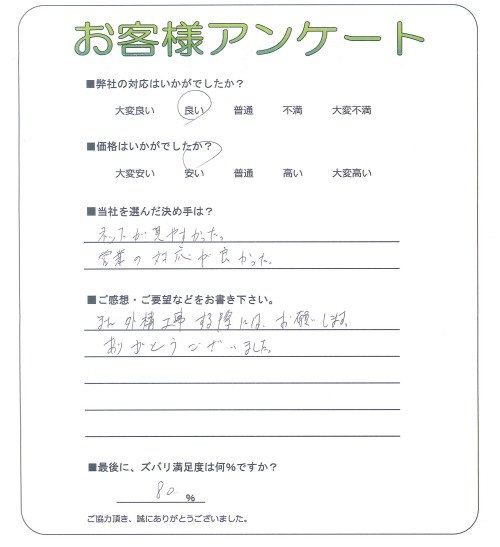 お客様アンケート
■弊社の対応はいかがでしたか？
大変良い 良い 普通 不満 大変不満
■価格はいかがでしたか？
大変安い 安い 普通 高い 大変高い
■当社を選んだ決め手は？
ネットが見やすかった。
営業の対応が良かった。
■ご感想・ご要望などをお書き下さい。
また外構工事する際には、お願いします。
ありがとうございました。
■最後に、ズバリ満足度は何％ですか？
80 %
ご協力頂き、誠にありがとうございました。